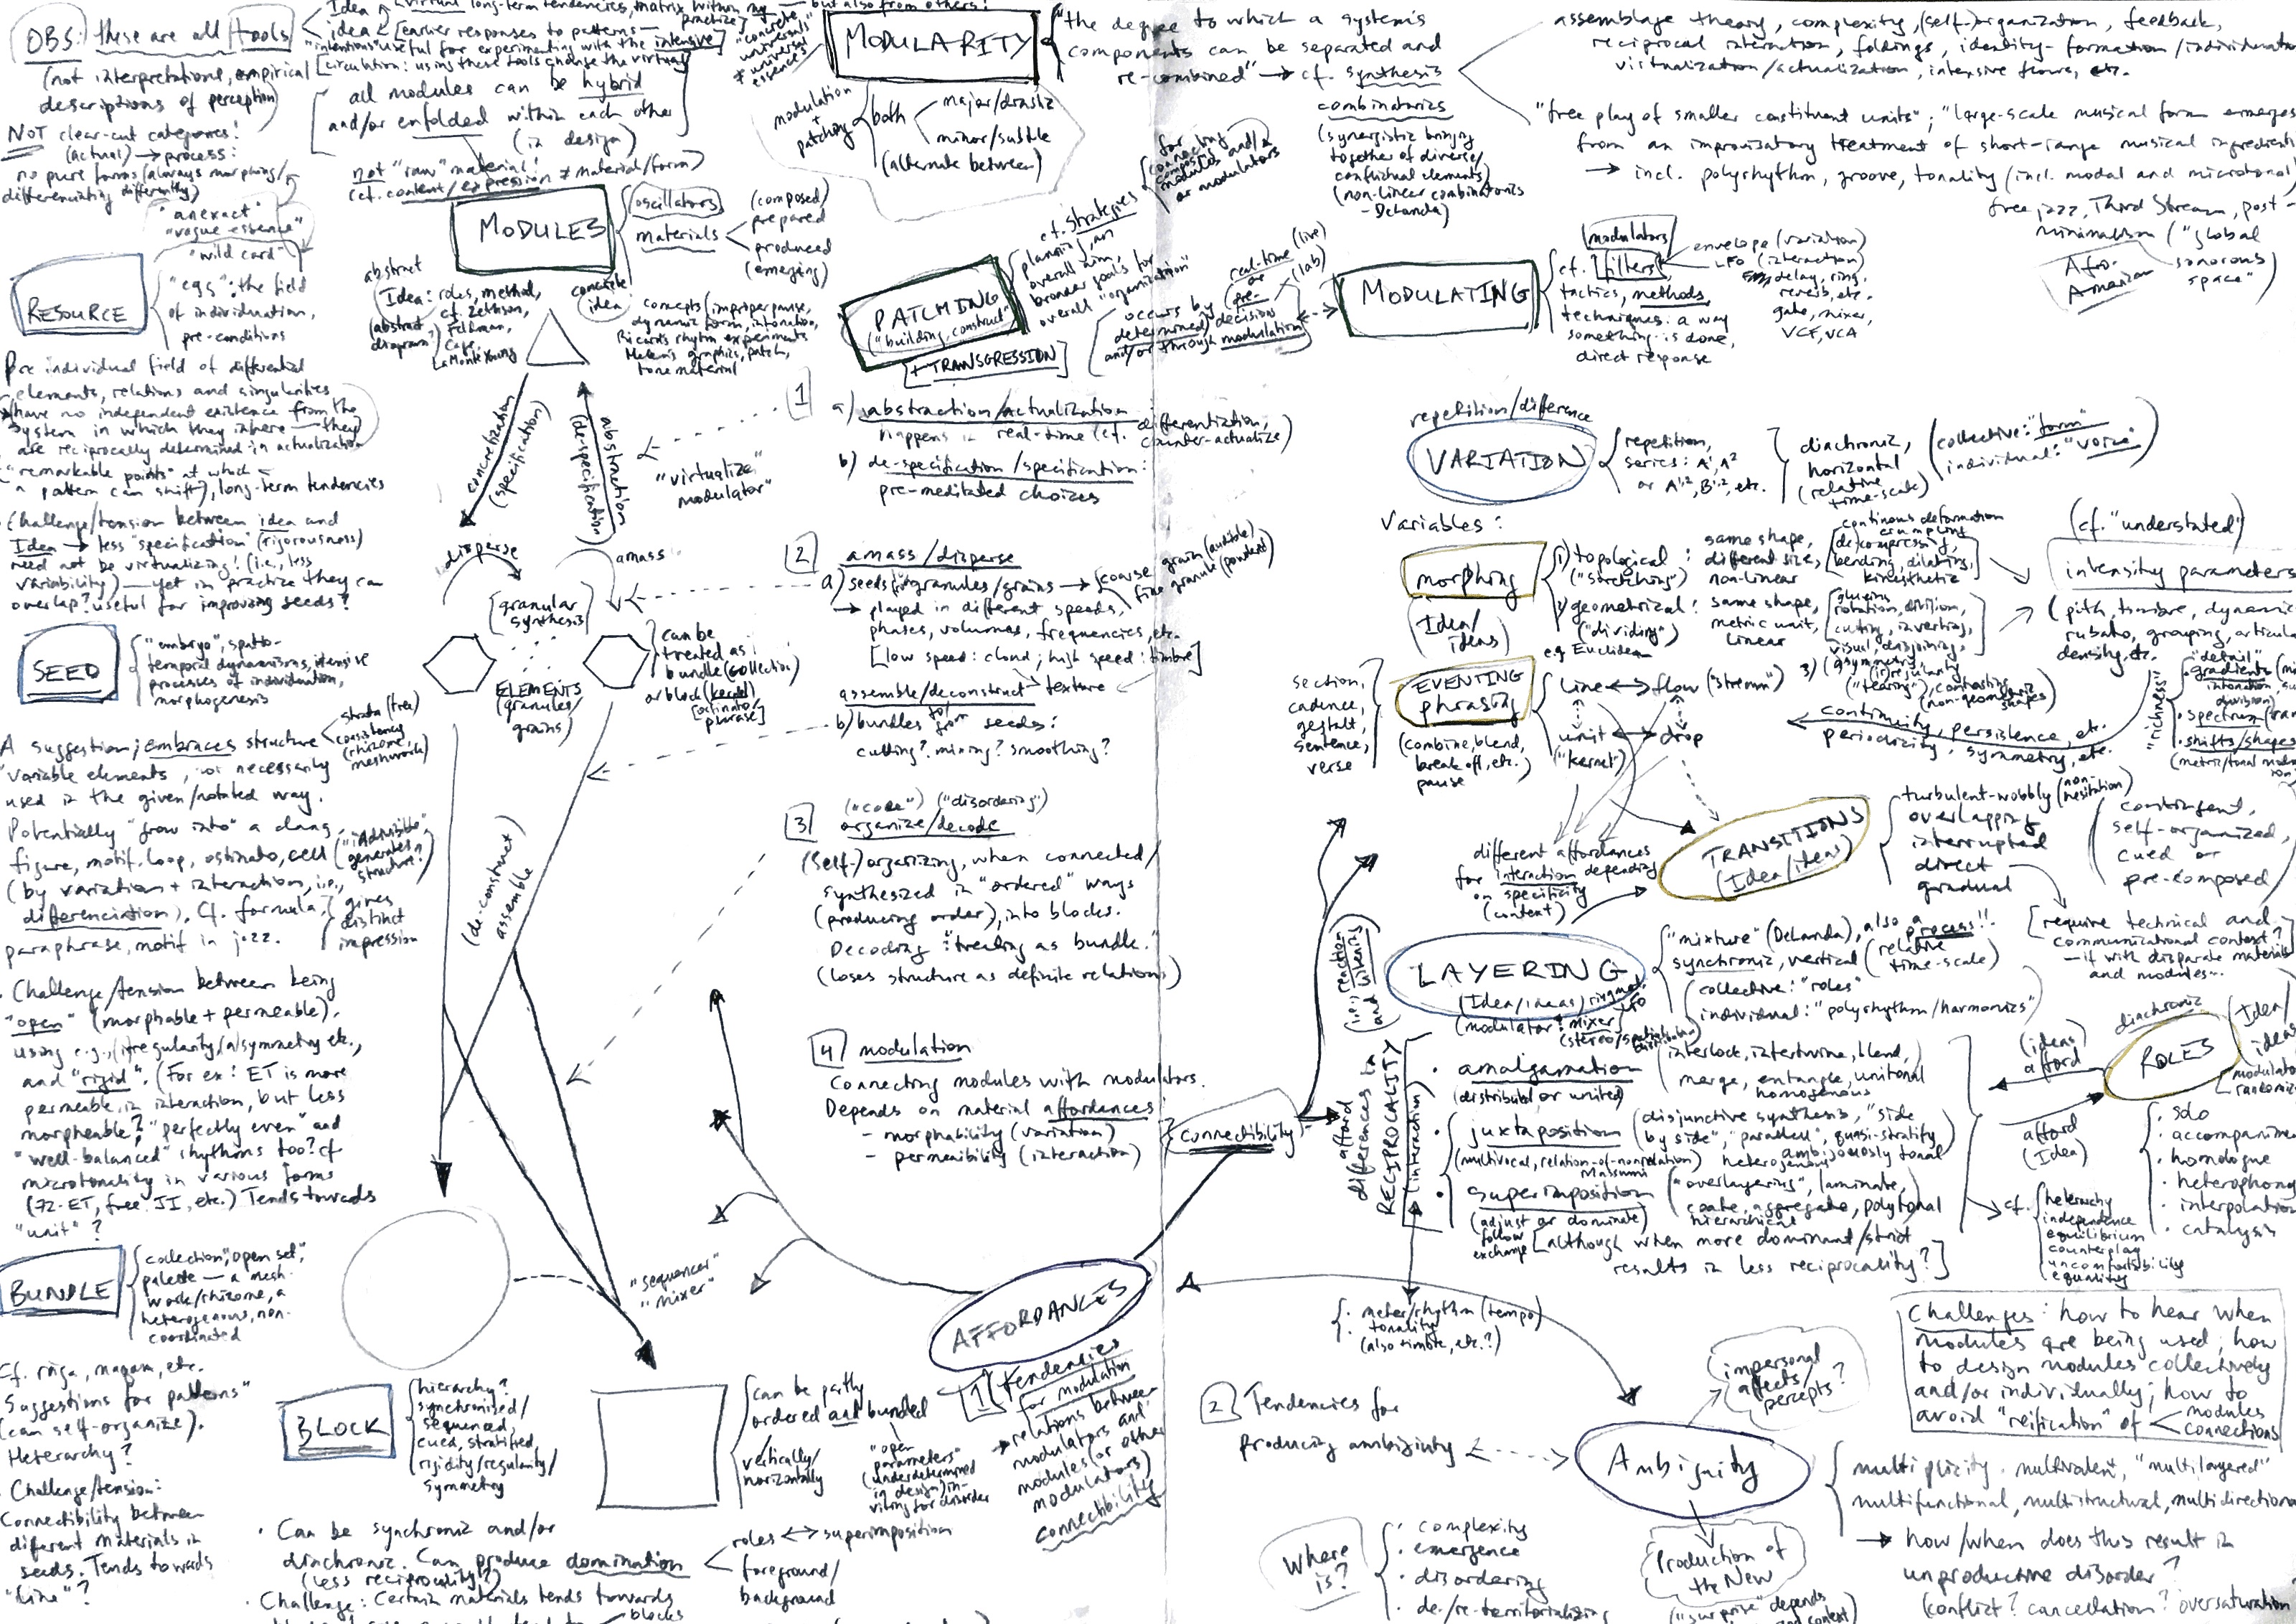 OBS: these are all tools
(not interpretations, empirical
descriptions of perception)
NOT clear-cut categories!
(actual) → process:
no pure forms (always morphing/
differentiating differently)
Idea
virtual long-term tendencies, matrix within
but also from others!
idea
[earlier responses to patterns—
"intentions" useful for experimenting with the intensive]
[circulation: using these tools change the virtual
"concrete
universals"
≠ universal
essences
all modules can be hybrid
and/or enfolded within each other
(in design)
not "raw" material!
(cf. content/expression ≠ material/form)
MODULARITY
"the degree to which a system's
components can be separated and
re-combined" → cf. synthesis
combinatorics
(synergistic bringing
together of diverse/
conflictual elements)
(non-linear combinatorics
- DeLanda)
modulation
+
patching
both
major/drastic
minor/subtle
(alternate between)
assemblage theory, complexity, (self-)organization, feedback,
reciprocal interaction, foldings, identity-formation/individuation
virtualization/actualization, intensive flows, etc.
"free play of smaller constituent units"; "large-scale musical form emerges
from an improvisatory treatment of short-range musical ingredients
→ incl. polyrhythm, groove, tonality (incl. modal and microtonal
free jazz, Third Stream, post-
minimalism ("global
sonorous
space")
Afro-
American
"anexact"
"vague essence"
"wild card"
RESOURCE
"egg": the field
of individuation,
pre-conditions
Pre individual field of differential
elements, relations and singularities
have no independent existence from the
system in which they inhere — they
are reciprocally determined in actualization
"remarkable points" at which
a pattern can shift), long-term tendencies
Challenge/tension between idea and
Idea → less "specification" (rigorousness)
need not be virtualizing! (i.e., less
variability) — yet in practice they can
overlap? useful for improving seeds?
MODULES
oscillators
materials
(composed)
prepared
produced
(emerging)
abstract
Idea: roles, method,
cf. Zetterson,
Feldman,
Cage,
LaMonte Young
(abstract
diagram)
concrete
idea
concepts (improper pause,
dynamic form, intonation,
Ricard's rhythm experiments
Helen's graphics, patch,
tone material
concretization
(specification)
abstraction
(de-specification)
PATCHING
("building, construct")
+ TRANSGRESSION
cf. strategies
planning, an
overall aim,
broader goals for
overall "organization"
for
connecting
composite
modules and/
or modulators
occurs by
real-time (live)
or
pre- (lab)
determined decisions
and/or through modulation
MODULATING
modulators
cf. filters,
tactics, methods
techniques: a way
something is done,
direct response
envelope (variation)
LFO (interaction)
delay, ring,
reverb, etc.
gate, mixer,
VCF, VCA
1
a) abstraction/actualization
happens in real-time (cf. differentiation,
counter-actualize)
b) de-specification/specification:
pre-meditated choices
"virtualize
modulator"
2
amass/disperse
a) seeds into granules/grains → coarse grain (audible)
fine granule (pondent)
→ played in different speeds,
phases, volumes, frequencies, etc.
[low speed: cloud; high speed: timbre]
assemble/deconstruct texture
b) bundles to/from seeds:
cutting? mixing? smoothing?
disperse
amass
[granular
synthesis]
ELEMENTS
(granules/
grains)
can be
treated as
bundle (collection)
or block (kernel)
[ostinato/
phrase]
SEED
"embryo", spatio-
temporal dynamisms, intensive
processes of individuation,
morphogenesis
A suggestion; embraces structure
strata (tree)
consistency
(rhizome,
meshwork)
"variable elements", not necessarily
used in the given/notated way.
Potentially "grow into" a clang,
figure, motif, loop, ostinato, cell
("indivisible"
generates
structure?
(by variation + interaction, i.e.,
differenciation). Cf. formula,
paraphrase, motif in jazz.
gives
distinct
impression
Challenge/tension between being
"open" (morphable + permeable),
using e.g., (ir)regularity/(a)symmetry etc.,
and "rigid". (For ex: ET is more
permeable in interaction, but less
morpheable? "perfectly even" and
"well-balanced" rhythms too? cf
microtonality in various forms
(72-ET, free JI, etc.) Tends towards
"unit"?
(de-construct)
assemble
3
("code") ("disordering")
organize/decode
(Self-)organizing, when connected/
synthesized in "ordered" ways
(producing order), into blocks.
Decoding: "treating as bundle."
(loses structure as definite relations)
4
modulation
Connecting modules with modulators.
Depends on material affordances:
- morphability (variation)
- permeability (interaction)
connectibility
repetition/difference
VARIATION
repetition,
series: A¹, A²
or A¹·², B¹·², etc.
diachronic,
horizontal
(relative
time-scale)
(collective: "form"
individual: "voice")
Variables:
morphing
(Idea/
ideas)
1) topological:
("stretching")
same shape,
different size,
non-linear
continous deformation
crumpling
(de)compressing,
bending, dilating,
kinesthetic
2) geometrical:
("dividing")
e.g Euclidean
same shape,
metric unit,
linear
glueing
rotation, division,
cutting, inverting,
visual, disjoining,
3) (asymmetry, (ir)regularity
("tearing"), contrasting
(non-geometric
shapes)
(cf. "understated")
intensity parameters
(pitch, timbre, dynamic
rubato, grouping, articula
density, etc.
"richness"
"detail"
gradients
intonation,
division)
spectrum
shifts/shapes
(metric/tonal
continuity, persistence, etc.
periodicity, symmetry, etc.
section,
cadence,
gestalt,
sentence,
verse
EVENTING
phrasing
(combine, blend,
break off, etc.)
pause
line ↔ flow ("stream")
unit ↔ drop
("kernel")
TRANSITIONS
(Idea/ideas)
turbulent-wobbly (non-
hesitation)
overlapping
interrupted
direct
gradual
contingent,
self-organized
cued or
pre-composed
[require technical and
communicational context?
— if with disparate materials
and modules...
different affordances
for interaction depending
on specificity
(context)
LAYERING
(Idea/ideas) ringmod
LFO
(modulator: mixer)
(stereo/spatial distribution)
"mixture" (DeLanda), also a process!!
synchronic, vertical (relative
time-scale)
(collective: "roles"
individual: "polyrhythm/harmonics")
(i.e., reaction
and listening)
afford
differences in
RECIPROCALITY
(interaction)
amalgamation
(distributed or united)
interlock, intertwine, blend,
merge, entangle, unitonal
homogenous
juxtaposition
(multivocal, relation-of-nonrelation)
Massumi
(disjunctive synthesis, "side
by side", "parallell", quasi-stratify
ambiguously tonal
heterogenous
superimposition
(adjust or dominate)
follow
exchange
("overlayering", laminate,
coate, aggregate, polytonal
hierarchical
[although when more dominant/strict
results in less reciprocality?]
(ideas)
afford
afford
(Idea)
diachronic
ROLES
Idea/
ideas
modulator
randomiz
solo
accompanime
homologue
heterophony
interpolation
catalysis
cf.
heterarchy
independence
equilibrium
counterplay
uncomfortability
equality
BUNDLE
collection, "open set",
palette — a mesh-
work/rhizome, a
heterogenous, non-
coordinated
Cf. rāga, maqam, etc.
Suggestions for patterns"
(can self-organize).
Heterarchy?
Challenge/tension:
Connectibility between
different materials in
seeds. Tends towards
"line"?
"sequencer"
"mixer"
BLOCK
hierarchy?
synchronised/
sequenced,
cued, stratified
rigidity/regularity/
symmetry
can be partly
ordered and bundled
vertically/
horizontally
"open
parameters"
(underdetermined
in design) in-
viting for disorder
Can be synchronic and/or
diachronic. Can produce domination
(less reciprocality?)
roles ↔ superimposition
foreground/
background
Challenge: Certain materials tends towards
blocks
AFFORDANCES
1
tendencies
for modulation
→ relations between
modulators and
modules (or other
modulators)
connectibility
meter/rhythm (tempo)
tonality
(also timbre, etc.?)
2
Tendencies for
producing ambiguity
Ambiguity
impersonal
affects/
percepts?
Challenges: how to hear when
modules are being used; how
to design modules collectively
and/or individually; how to
avoid "reification" of
modules
connections
multiplicity. multivalent, "multilayered"
multifunctional, multistructural, multidirectiona
→ how/when does this result in
unproductive disorder?
(conflict? cancellation? oversaturation
Where
is?
complexity
emergence
disordering
de-/re-territorializing
Production of
the New
("surprise" depends